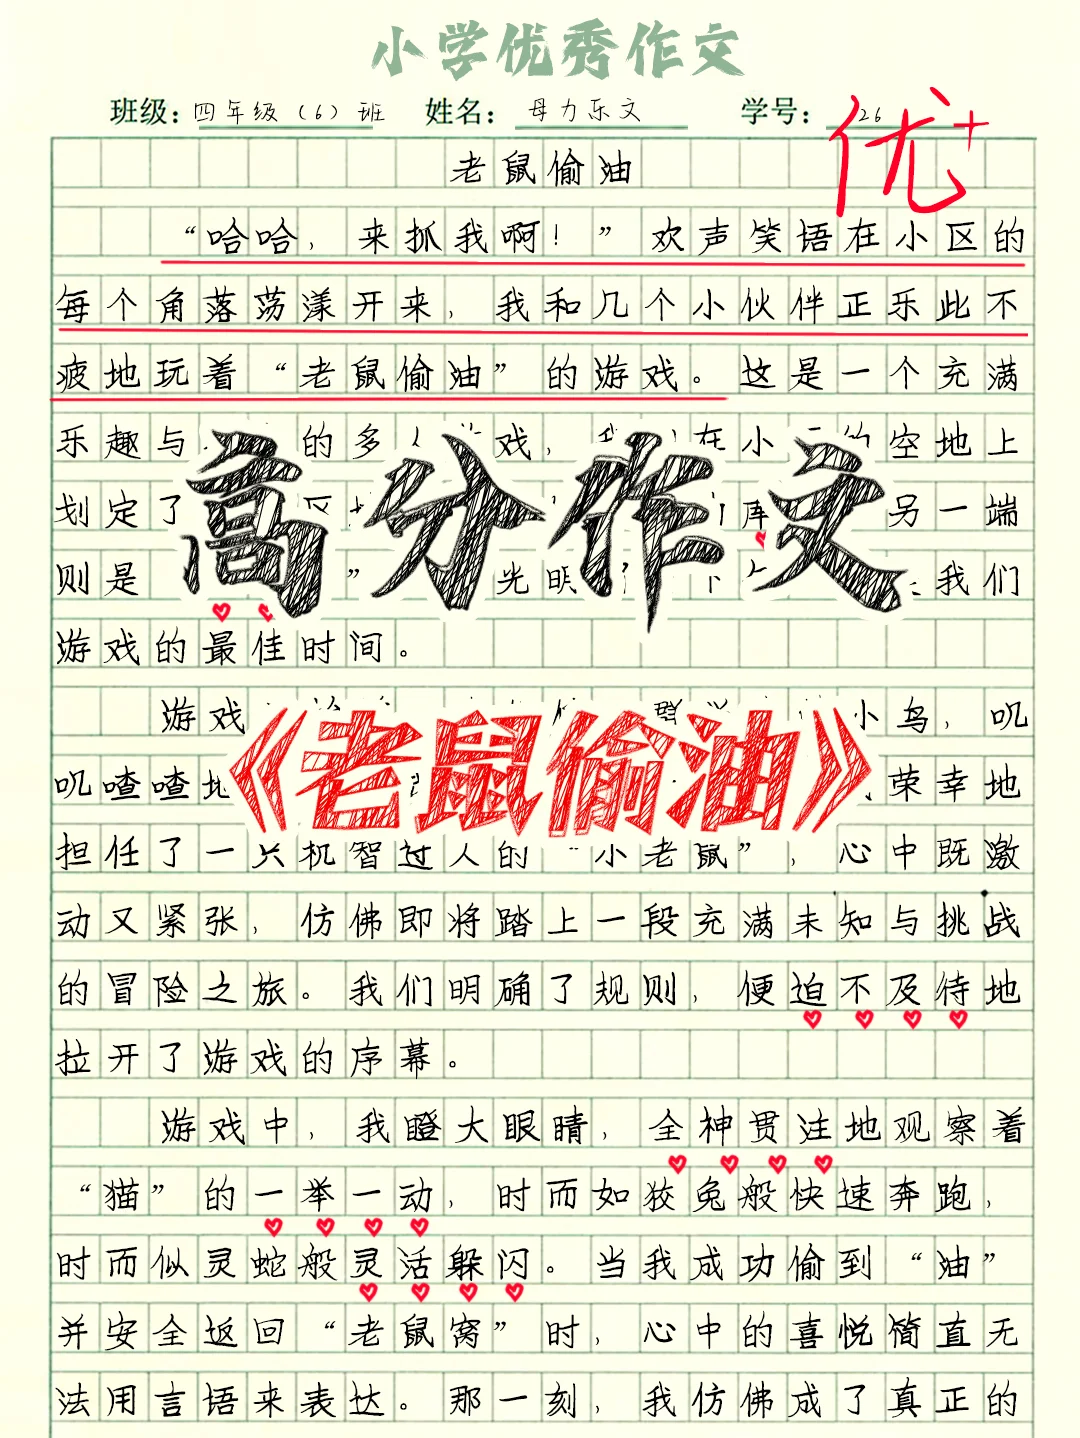 小学优秀作文
班级：四年级（6）班 姓名：母力乐文 学号：26
优+
老鼠偷油
“哈哈，来抓我啊！”欢声笑语在小区的
每个角落荡漾开来，我和几个小伙伴正乐此不
疲地玩着“老鼠偷油”的游戏。这是一个充满
乐趣与 的多 戏， 在小 空地上
划定了 库 另一端
则是 ” 光明 我们
高分作文
游戏的最佳时间。
游戏 小鸟，叽
叽喳喳地 荣幸地
《老鼠偷油》
担任了一只机智过人的“小老鼠”，心中既激
动又紧张，仿佛即将踏上一段充满未知与挑战
的冒险之旅。我们明确了规则，便迫不及待地
拉开了游戏的序幕。
游戏中，我瞪大眼睛，全神贯注地观察着
“猫”的一举一动，时而如狡兔般快速奔跑，
时而似灵蛇般灵活躲闪。当我成功偷到“油”
并安全返回“老鼠窝”时，心中的喜悦简直无
法用言语来表达。那一刻，我仿佛成了真正的